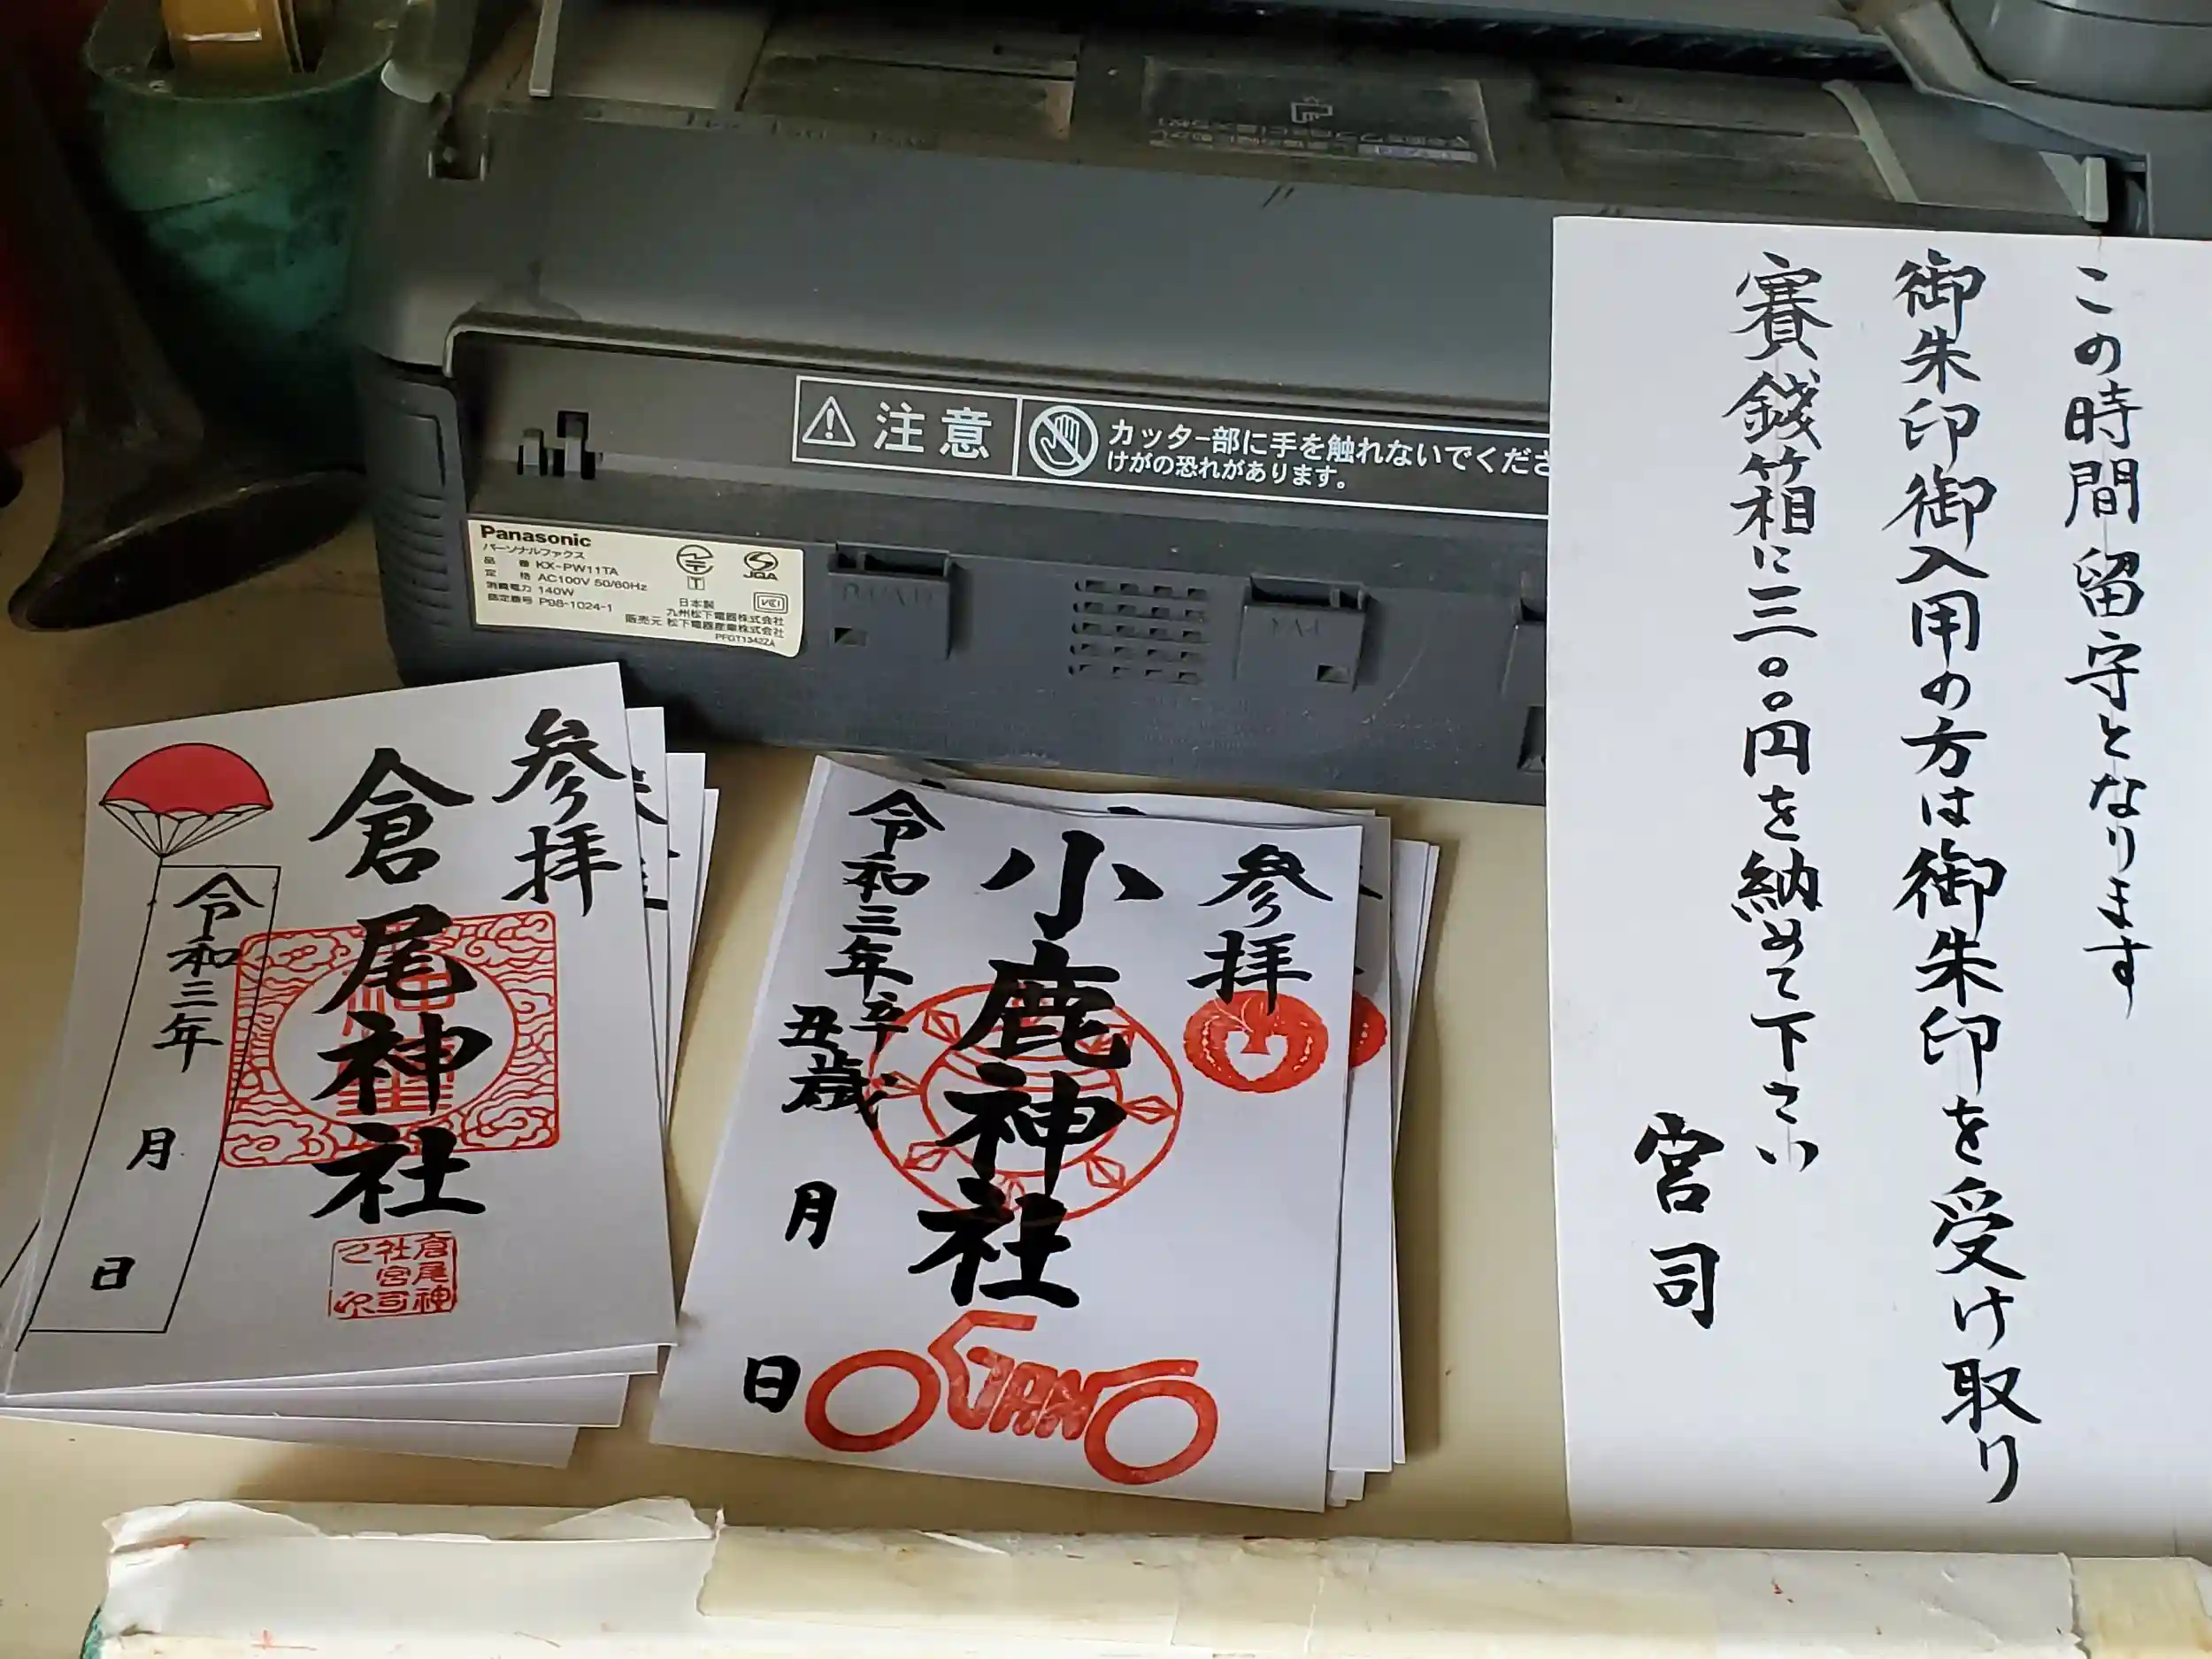 注意
カッター部に手を触れないでくださ
けがの恐れがあります。
Panasonic
パーソナルファクス
品番 KX-PW11TA
定格 AC100V 50/60Hz
消費電力 140W
認定番号 P98-1024-1
JQA
T
VCCI
日本製
九州松下電器株式会社
販売元 松下電器産業株式会社
PFGT1342ZA
この時間留守となります
御朱印御入用の方は御朱印を受け取り
賽銭箱に三〇〇円を納めて下さい
宮司
参拝
倉尾神社
令和三年
月
日
倉尾神
社宮司
之印
参拝
小鹿神社
令和三年辛
丑歳
月
日